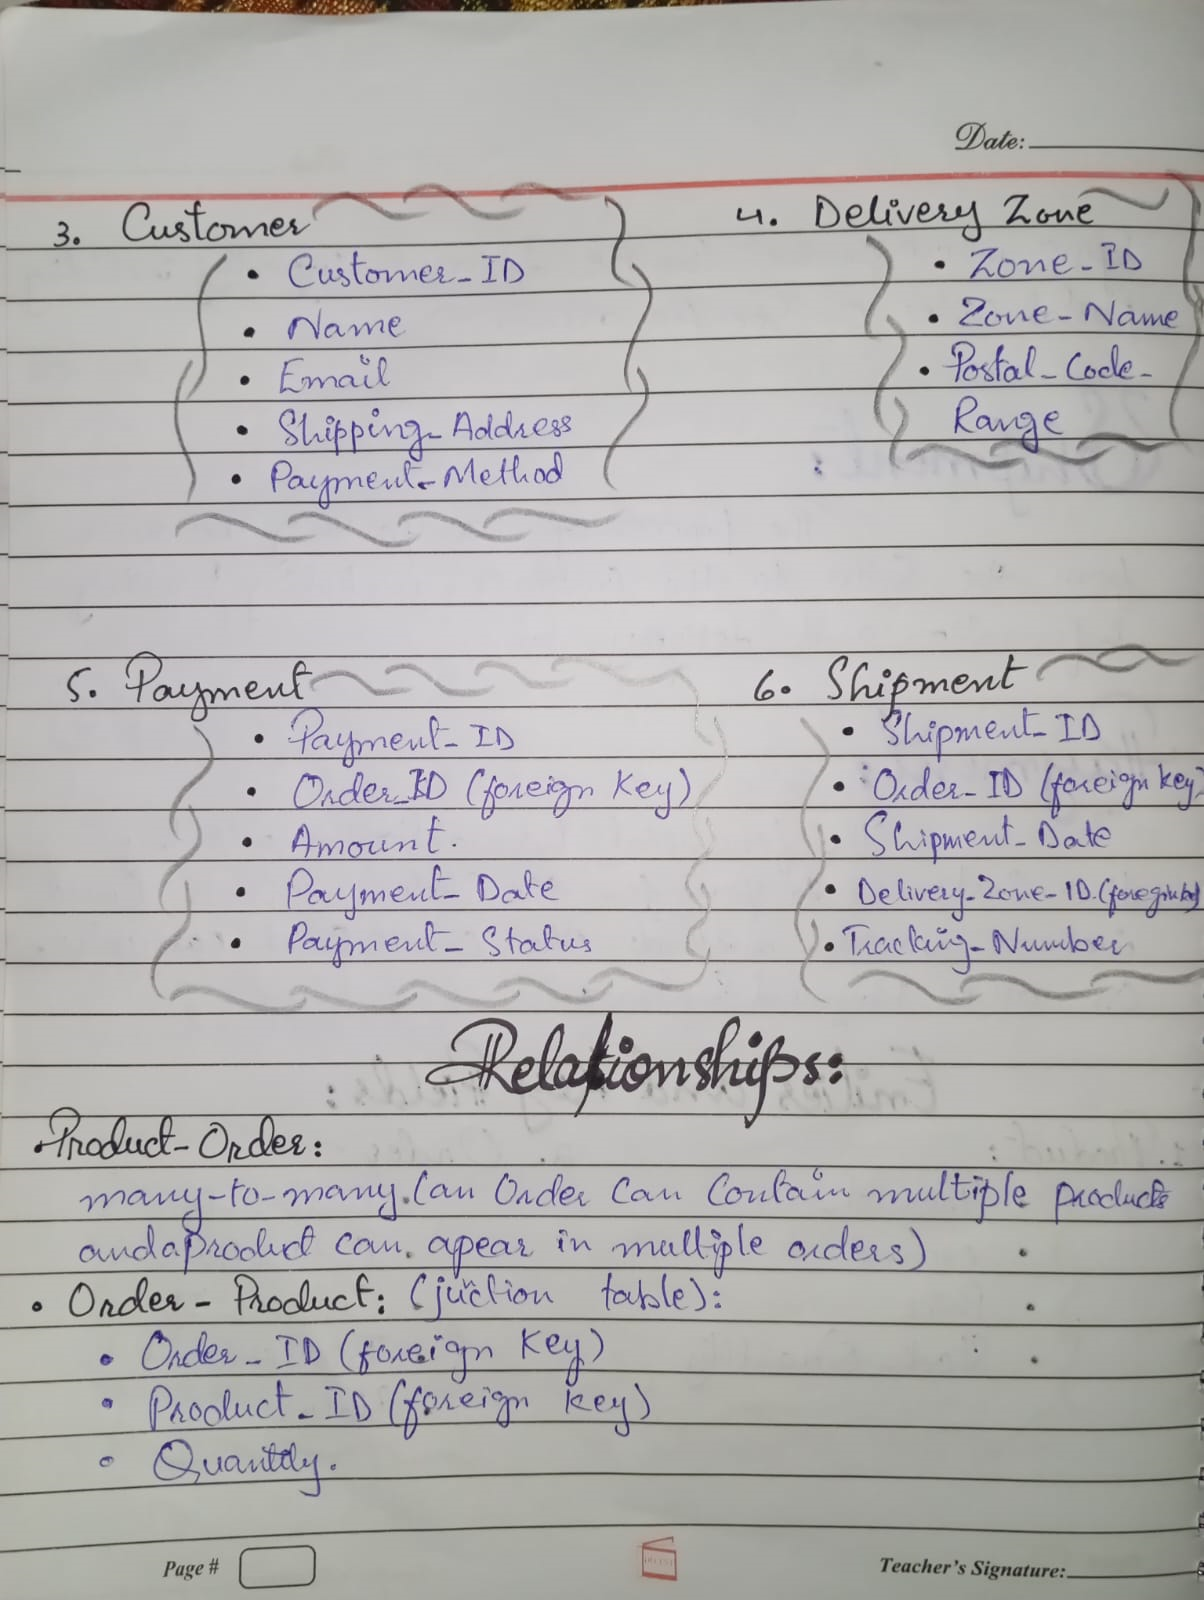 Date:
3. Customer
• Customer_ID
• Name
• Email
• Shipping_Address
• Payment_Method
4. Delivery Zone
• Zone_ID
• Zone_Name
• Postal_Code_
Range
5. Payment
• Payment_ID
• Order_ID (foreign key)
• Amount.
• Payment_Date
• Payment_Status
6. Shipment
• Shipment_ID
• Order_ID (foreign key)
• Shipment_Date
• Delivery_Zone_ID.
• Tracking_Number
Relationships:
• Product-Order:
many-to-many.(an Order can contain multiple products
and a product can. apear in multiple orders)
• Order-Product: (juction table):
• Order_ID (foreign key)
• Product_ID (foreign key)
• Quantity.
Page #
Teacher's Signature: